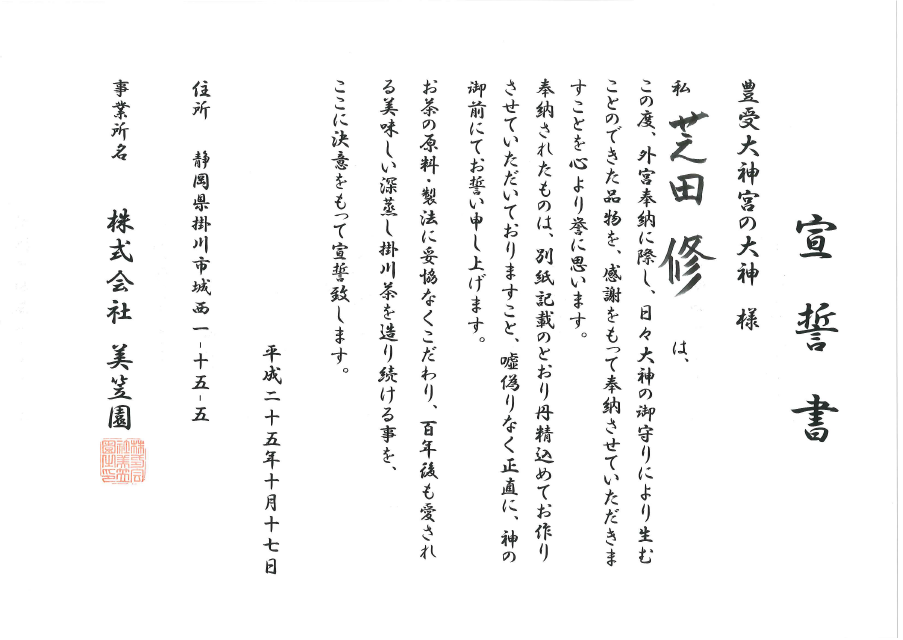 宣誓書
豊受大神宮の大神 様
私 芝田 修 は、
この度、外宮奉納に際し、日々大神の御守りにより生む
ことのできた品物を、感謝をもって奉納させていただきま
すことを心より誉に思います。
奉納されたものは、別紙記載のとおり丹精込めてお作り
させていただいておりますこと、嘘偽りなく正直に、神の
御前にてお誓い申し上げます。
お茶の原料・製法に妥協なくこだわり、百年後も愛され
る美味しい深蒸し掛川茶を造り続ける事を、
ここに決意をもって宣誓致します。
平成二十五年十月十七日
住所 静岡県掛川市城西一-十五-五
事業所名 株式会社 美笠園